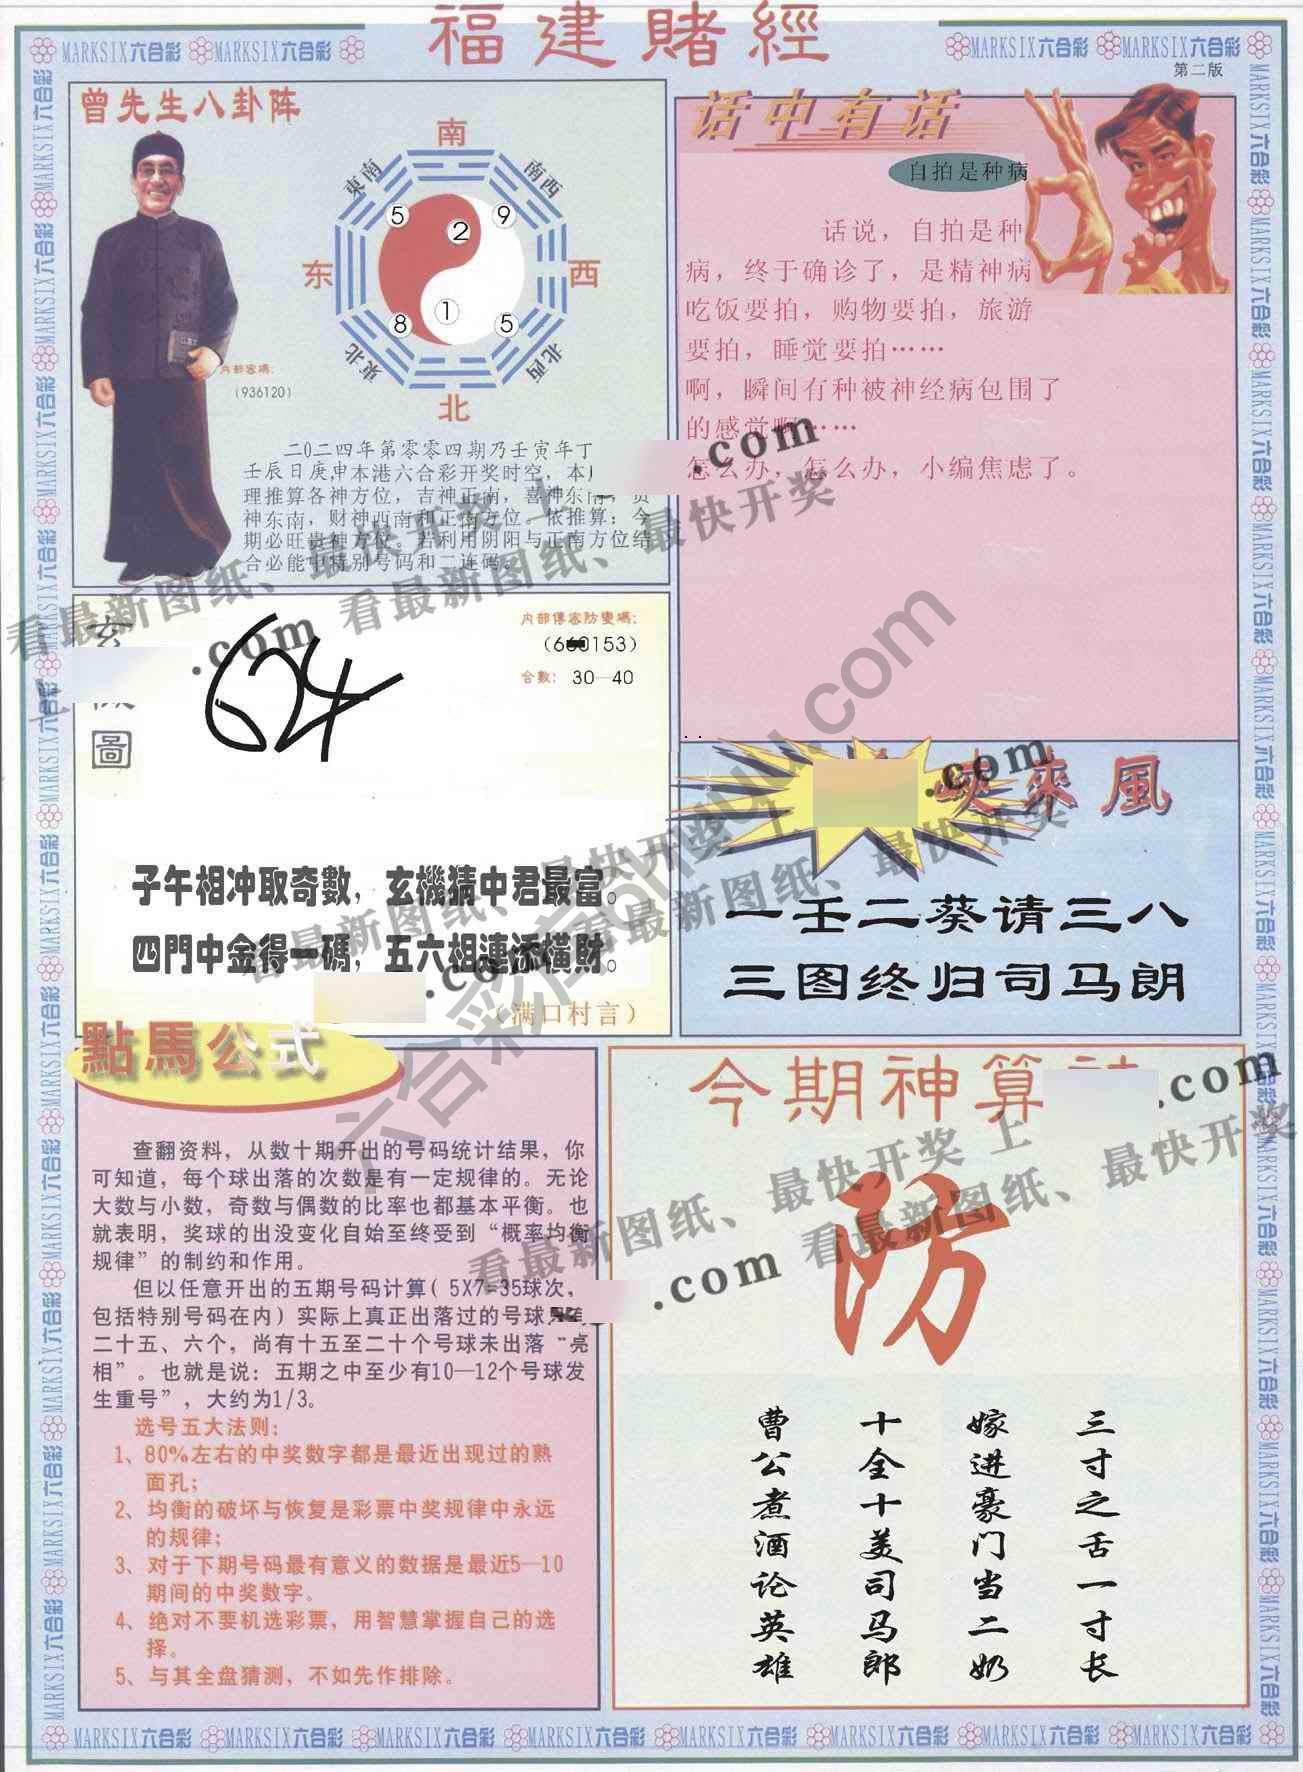 福建賭經
MARKSIX六合彩 MARKSIX六合彩
MARKSIX六合彩 MARKSIX六合彩
第二版
曾先生八卦阵
南
東南
南西
东
西
東北
北西
北
5
2
9
8
1
5
(936120)
二O二四年第零零四期乃壬寅年丁
壬辰日庚申本港六合彩开奖时空，本
理推算各神方位，吉神正南，喜神东南，贵
神东南，财神西南和正南方位。依推算：今
期必旺贵神方位，若利用阴阳与正南方位结
合必能中特别号码和二连码。
话中有话
自拍是种病
话说，自拍是种
病，终于确诊了，是精神病
吃饭要拍，购物要拍，旅游
要拍，睡觉要拍……
啊，瞬间有种被神经病包围了
的感觉啊……
怎么办，怎么办，小编焦虑了。
玄
圖
624
0153)
合數：30—40
子午相冲取奇數，玄機猜中君最富。
四門中金得一碼，五六相連添横財。
（满口村言）
峽來風
一壬二葵请三八
三图终归司马朗
點馬公式
查翻资料，从数十期开出的号码统计结果，你
可知道，每个球出落的次数是有一定规律的。无论
大数与小数，奇数与偶数的比率也都基本平衡。也
就表明，奖球的出没变化自始至终受到“概率均衡
规律”的制约和作用。
但以任意开出的五期号码计算( 5X7=35球次，
包括特别号码在内）实际上真正出落过的号球
二十五、六个，尚有十五至二十个号球未出落“亮
相”。也就是说：五期之中至少有10—12个号球发
生重号”，大约为1/3。
选号五大法则：
1、80%左右的中奖数字都是最近出现过的熟
面孔；
2、均衡的破坏与恢复是彩票中奖规律中永远
的规律；
3、对于下期号码最有意义的数据是最近5—10
期间的中奖数字。
4、绝对不要机选彩票，用智慧掌握自己的选
择。
5、与其全盘猜测，不如先作排除。
今期神算
防
三寸之舌一寸长
嫁进豪门当二奶
十全十美司马郎
曹公煮酒论英雄
MARKSIX六合彩 MARKSIX六合彩 MARKSIX六合彩 MARKSIX六合彩 MARKSIX六合彩 MARKSIX六合彩 MARKSIX六合彩 MARKSIX六合彩
看最新图纸、最快开奖 上
.com
看最新图纸、最快开奖
.com
看最新图纸、最快开奖 上
.com
看最新图纸、最快开奖
.com
看最新图纸、最快开奖 上
.com
看最新图纸、最快开奖
.com